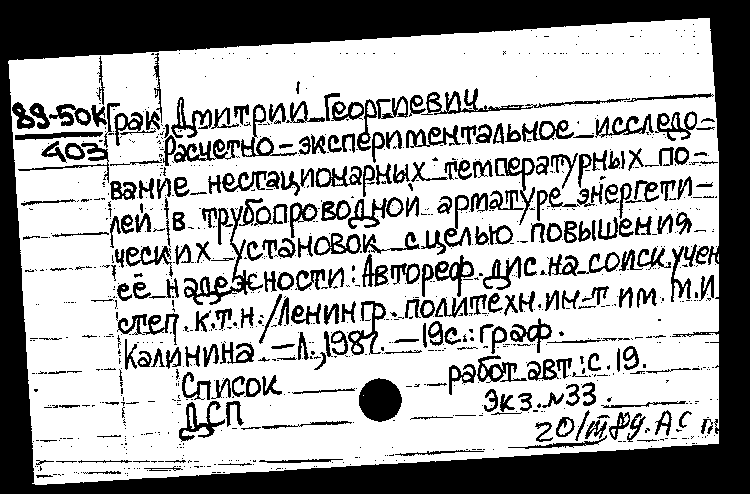 89-50К Грак, Дмитрий Георгиевич
403 Расчетно-экспериментальное исследо-
вание нестационарных температурных по-
лей в трубопроводной арматуре энергети-
ческих установок с целью повышения
её надежности: Автореф. дис. на соиск. учен
степ. к.т.н. /Ленингр. политехн. ин-т им. М.И
Калинина. – Л., 1987. – 19с.: граф.
Список работ авт.: с. 19.
ДСП Экз. №33.
20/III 89. А.С